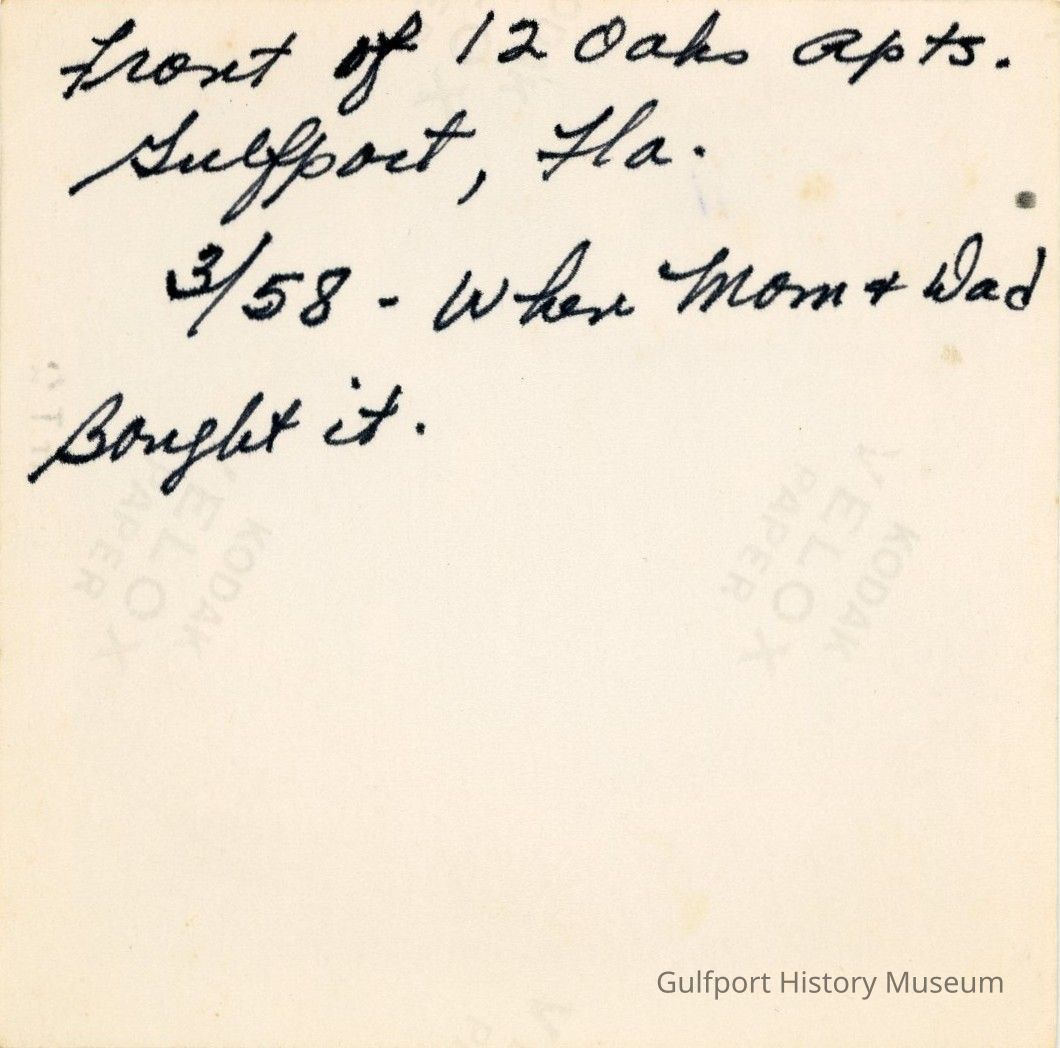 Front of 12 Oaks Apts.
Gulfport, Fla.
3/58 - When Mom & Dad
Bought it.
VELOX
KODAK
PAPER
VELOX
KODAK
PAPER
Gulfport History Museum